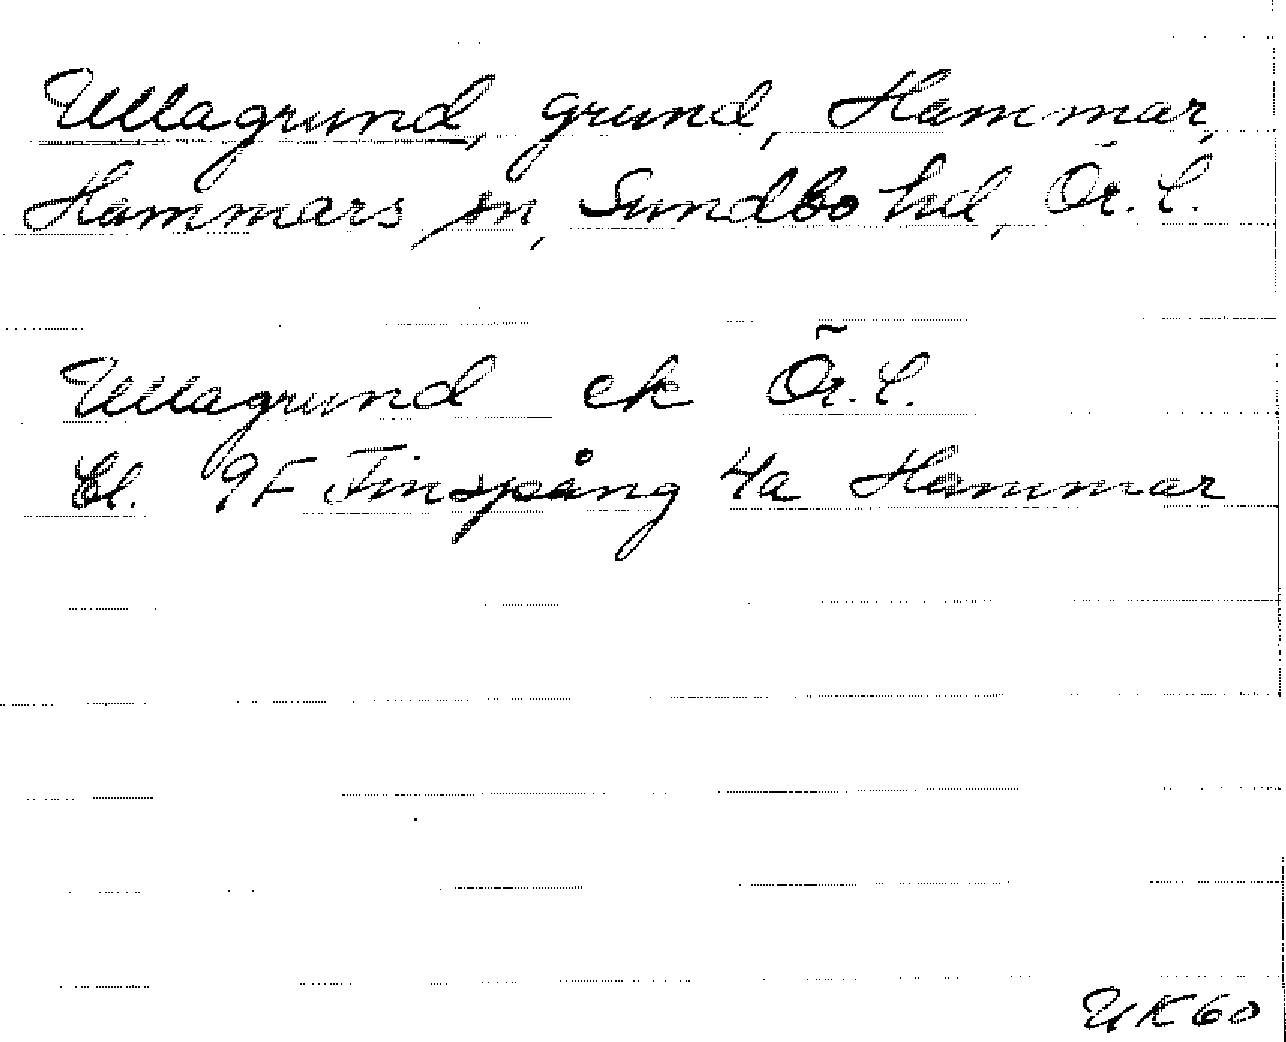 Ullagrund, grund, Hammar,
Hammars sn, Sundbo hd, Ör. l.
Ullagrund ek Ör. l.
bl. 9F Finspång 4a Hammar
UK60